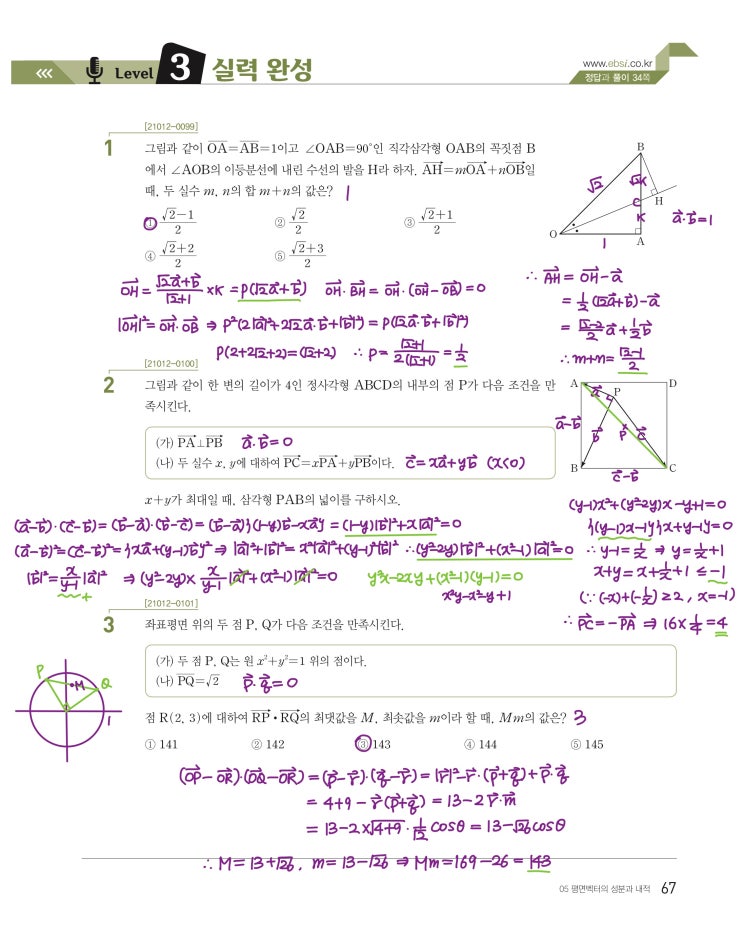 www.ebsi.co.kr
정답과 풀이 34쪽
Level 3 실력 완성
[21012-0099]
1 그림과 같이 OA=AB=1이고 ∠OAB=90°인 직각삼각형 OAB의 꼭짓점 B
에서 ∠AOB의 이등분선에 내린 수선의 발을 H라 하자. AH=mOA+nOB일
때, 두 실수 m, n의 합 m+n의 값은? 1
① (√2−1)/2 ② √2/2 ③ (√2+1)/2
④ (√2+2)/2 ⑤ (√2+3)/2
B
√2 √2K
C H
K a⃗·b⃗=1
O 1 A
OH⃗ = (√2a⃗+b⃗)/(√2+1) ×K = p(√2a⃗+b⃗) OH⃗·BH⃗ = OH⃗·(OH⃗−OB⃗)=0
|OH⃗|²=OH⃗·OB⃗ ⇒ p²(2|a⃗|²+2√2a⃗·b⃗+|b⃗|²)=p(√2a⃗·b⃗+|b⃗|²)
p(2+2√2+2)=(√2+2) ∴ p=(√2+1)/(2(√2+1))=1/2
∴ AH⃗ = OH⃗−a⃗
= 1/2(√2a⃗+b⃗)−a⃗
= (√2−2)/2 a⃗+1/2 b⃗
∴ m+n=(√2−1)/2
[21012-0100]
2 그림과 같이 한 변의 길이가 4인 정사각형 ABCD의 내부의 점 P가 다음 조건을 만
족시킨다.
(가) PA⊥PB a⃗·b⃗=0
(나) 두 실수 x, y에 대하여 PC=xPA+yPB이다. c⃗=xa⃗+yb⃗ (x<0)
x+y가 최대일 때, 삼각형 PAB의 넓이를 구하시오.
A D
a⃗ P
a⃗−b⃗ b⃗ P c⃗
B C
c⃗−b⃗
(a⃗−b⃗)·(c⃗−b⃗)=(b⃗−a⃗)·(b⃗−c⃗)=(b⃗−a⃗){(1−y)b⃗−xa⃗}=(1−y)|b⃗|²+x|a⃗|²=0
(a⃗−b⃗)²=(c⃗−b⃗)²={xa⃗+(y−1)b⃗}² ⇒ |a⃗|²+|b⃗|²=x²|a⃗|²+(y−1)²|b⃗|² ∴(y²−2y)|b⃗|²+(x²−1)|a⃗|²=0
|b⃗|²=x/(y−1)|a⃗|² ⇒ (y²−2y)×x/(y−1)|a⃗|²+(x²−1)|a⃗|²=0 y²x−2xy+(x²−1)(y−1)=0
+ x²y−x²−y+1
(y−1)x²+(y²−2y)x−y+1=0
{(y−1)x−1}{x+y−1}=0
∴ y−1=1/x ⇒ y=1/x+1
x+y=x+1/x+1 ≤ −1
(∵(−x)+(−1/x)≥2, x=−1)
∴ PC⃗=−PA⃗ ⇒ 16×1/4=4
[21012-0101]
3 좌표평면 위의 두 점 P, Q가 다음 조건을 만족시킨다.
(가) 두 점 P, Q는 원 x²+y²=1 위의 점이다.
(나) PQ=√2 p⃗·q⃗=0
점 R(2, 3)에 대하여 RP·RQ의 최댓값을 M, 최솟값을 m이라 할 때, Mm의 값은? 3
① 141 ② 142 ③ 143 ④ 144 ⑤ 145
P M Q
1
(OP⃗−OR⃗)·(OQ⃗−OR⃗)=(p⃗−r⃗)·(q⃗−r⃗)=|r⃗|²−r⃗·(p⃗+q⃗)+p⃗·q⃗
= 4+9−r⃗(p⃗+q⃗)=13−2r⃗·m⃗
= 13−2×√(4+9)·1/√2 cosθ=13−√26cosθ
∴ M=13+√26, m=13−√26 ⇒ Mm=169−26=143
05 평면벡터의 성분과 내적 67